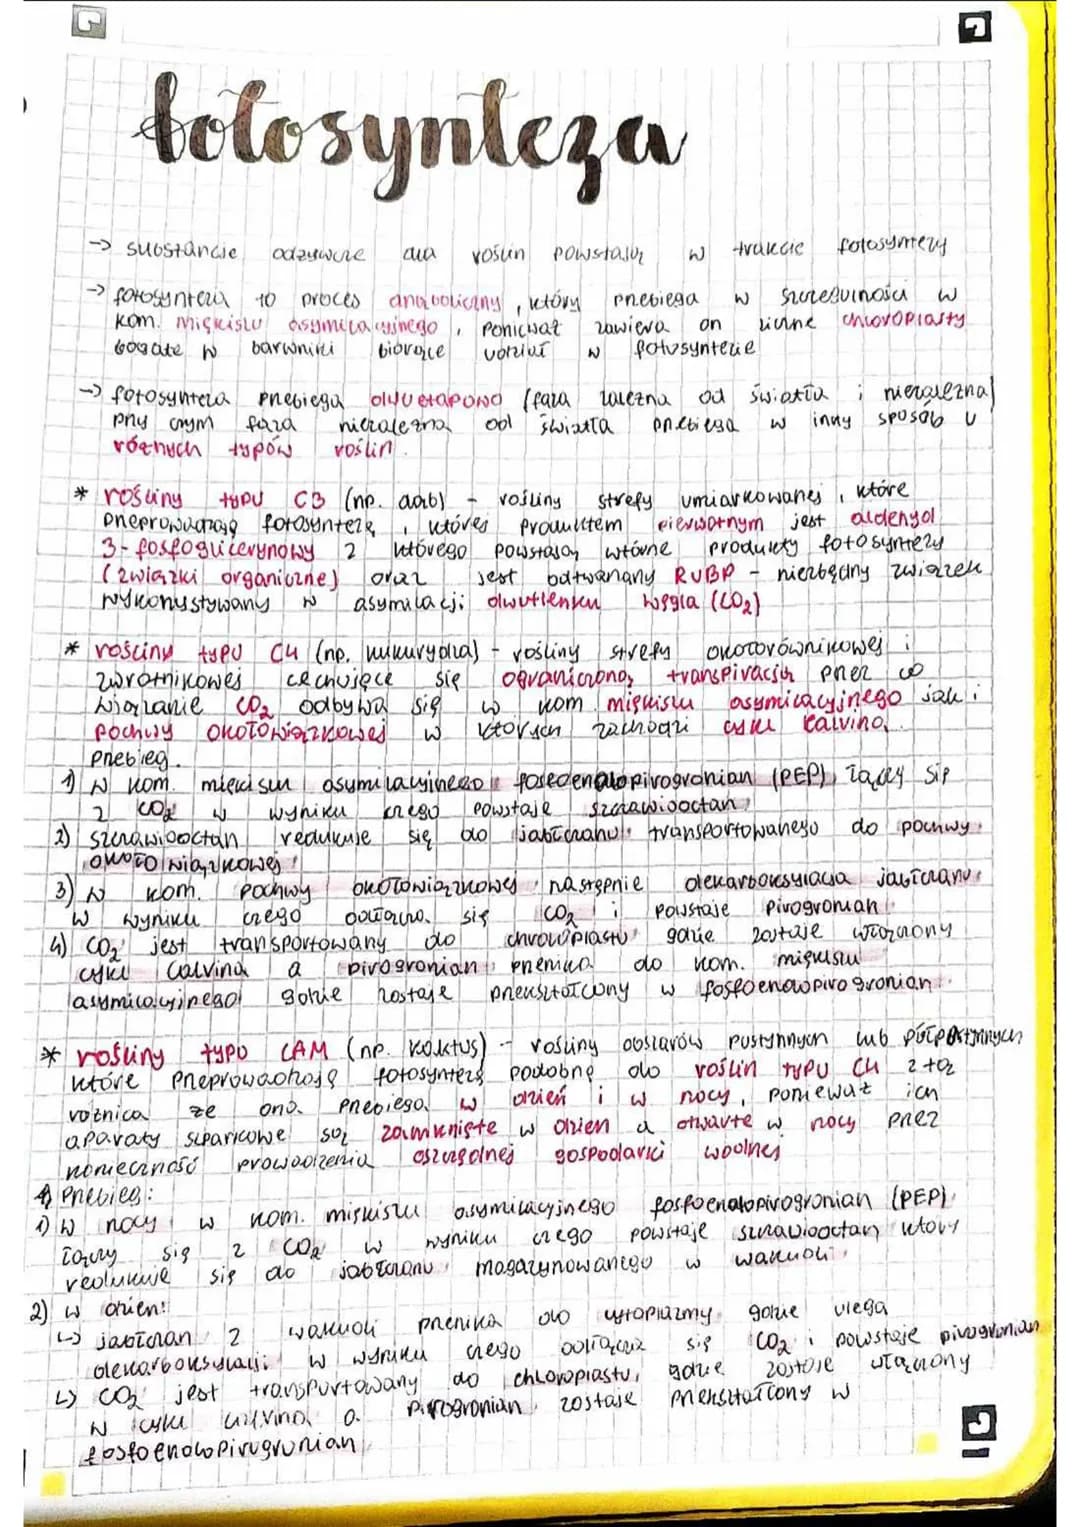 fotosynteza
→ substancje odżywcze dla roślin powstają w trakcie fotosyntezy
→ fotosynteza to proces anaboliczny, który przebiega w szczególności w
kom. miękiszu asymilacyjnego, ponieważ zawiera on liczne chloroplasty
bogate w barwniki biorące udział w fotosyntezie
→ fotosynteza przebiega dwuetapowo (faza zależna od światła i niezależna)
przy czym faza niezależna od światła przebiega w inny sposób u
różnych typów roślin.
* rośliny typu C3 (np. dąb) - rośliny strefy umiarkowanej, które
przeprowadzają fotosyntezę, której produktem pierwotnym jest aldehyd
3-fosfoglicerynowy z którego powstają wtórne produkty fotosyntezy
(związki organiczne) oraz jest odtwarzany RUBP - niezbędny związek
wykorzystywany w asymilacji dwutlenku węgla (CO₂)
* rośliny typu C4 (np. kukurydza) - rośliny strefy okołorównikowej i
zwrotnikowej cechujące się ograniczoną transpiracją przez co
wiązanie CO₂ odbywa się w kom. miękiszu asymilacyjnego jak i
pochwy okołowiązkowej w których zachodzi cykl Calvina.
Przebieg.
1) w kom. miękiszu asymilacyjnego fosfoenolopirogronian (PEP) łączy się
z CO₂ w wyniku czego powstaje szczawiooctan
2) szczawiooctan redukuje się do jabłczanu transportowanego do pochwy
okołowiązkowej
3) w kom. pochwy okołowiązkowej następnie dekarboksylacja jabłczanu
w wyniku czego odłącza się CO₂ i powstaje pirogronian
4) CO₂ jest transportowany do chroloplastu gdzie zostaje włączony
cykl Calvina a pirogronian przenika do kom. miękiszu
asymilacyjnego gdzie zostaje przekształcony w fosfoenolopirogronian.
* rośliny typu CAM (np. kaktus) - rośliny obszarów pustynnych lub półpustynnych
które przeprowadzają fotosyntezę podobną do roślin typu C4 z tą
różnicą że ona przebiega w dzień i w nocy, ponieważ ich
aparaty szparkowe są zamknięte w dzień a otwarte w nocy przez
konieczność prowadzenia oszczędnej gospodarki wodnej
Przebieg:
1) w nocy w kom. miękiszu asymilacyjnego fosfoenolopirogronian (PEP)
łączy się z CO₂ w wyniku czego powstaje szczawiooctan który
redukuje się do jabłczanu magazynowanego w wakuoli
2) w dzień:
↳ jabłczan z wakuoli przenika do cytoplazmy gdzie ulega
dekarboksylacji w wyniku czego odłącza się CO₂ i powstaje pirogronian
↳ CO₂ jest transportowany do chloroplastu, gdzie zostaje włączony
w cykl Calvina a pirogronian zostaje przekształcony w
fosfoenolopirogronian